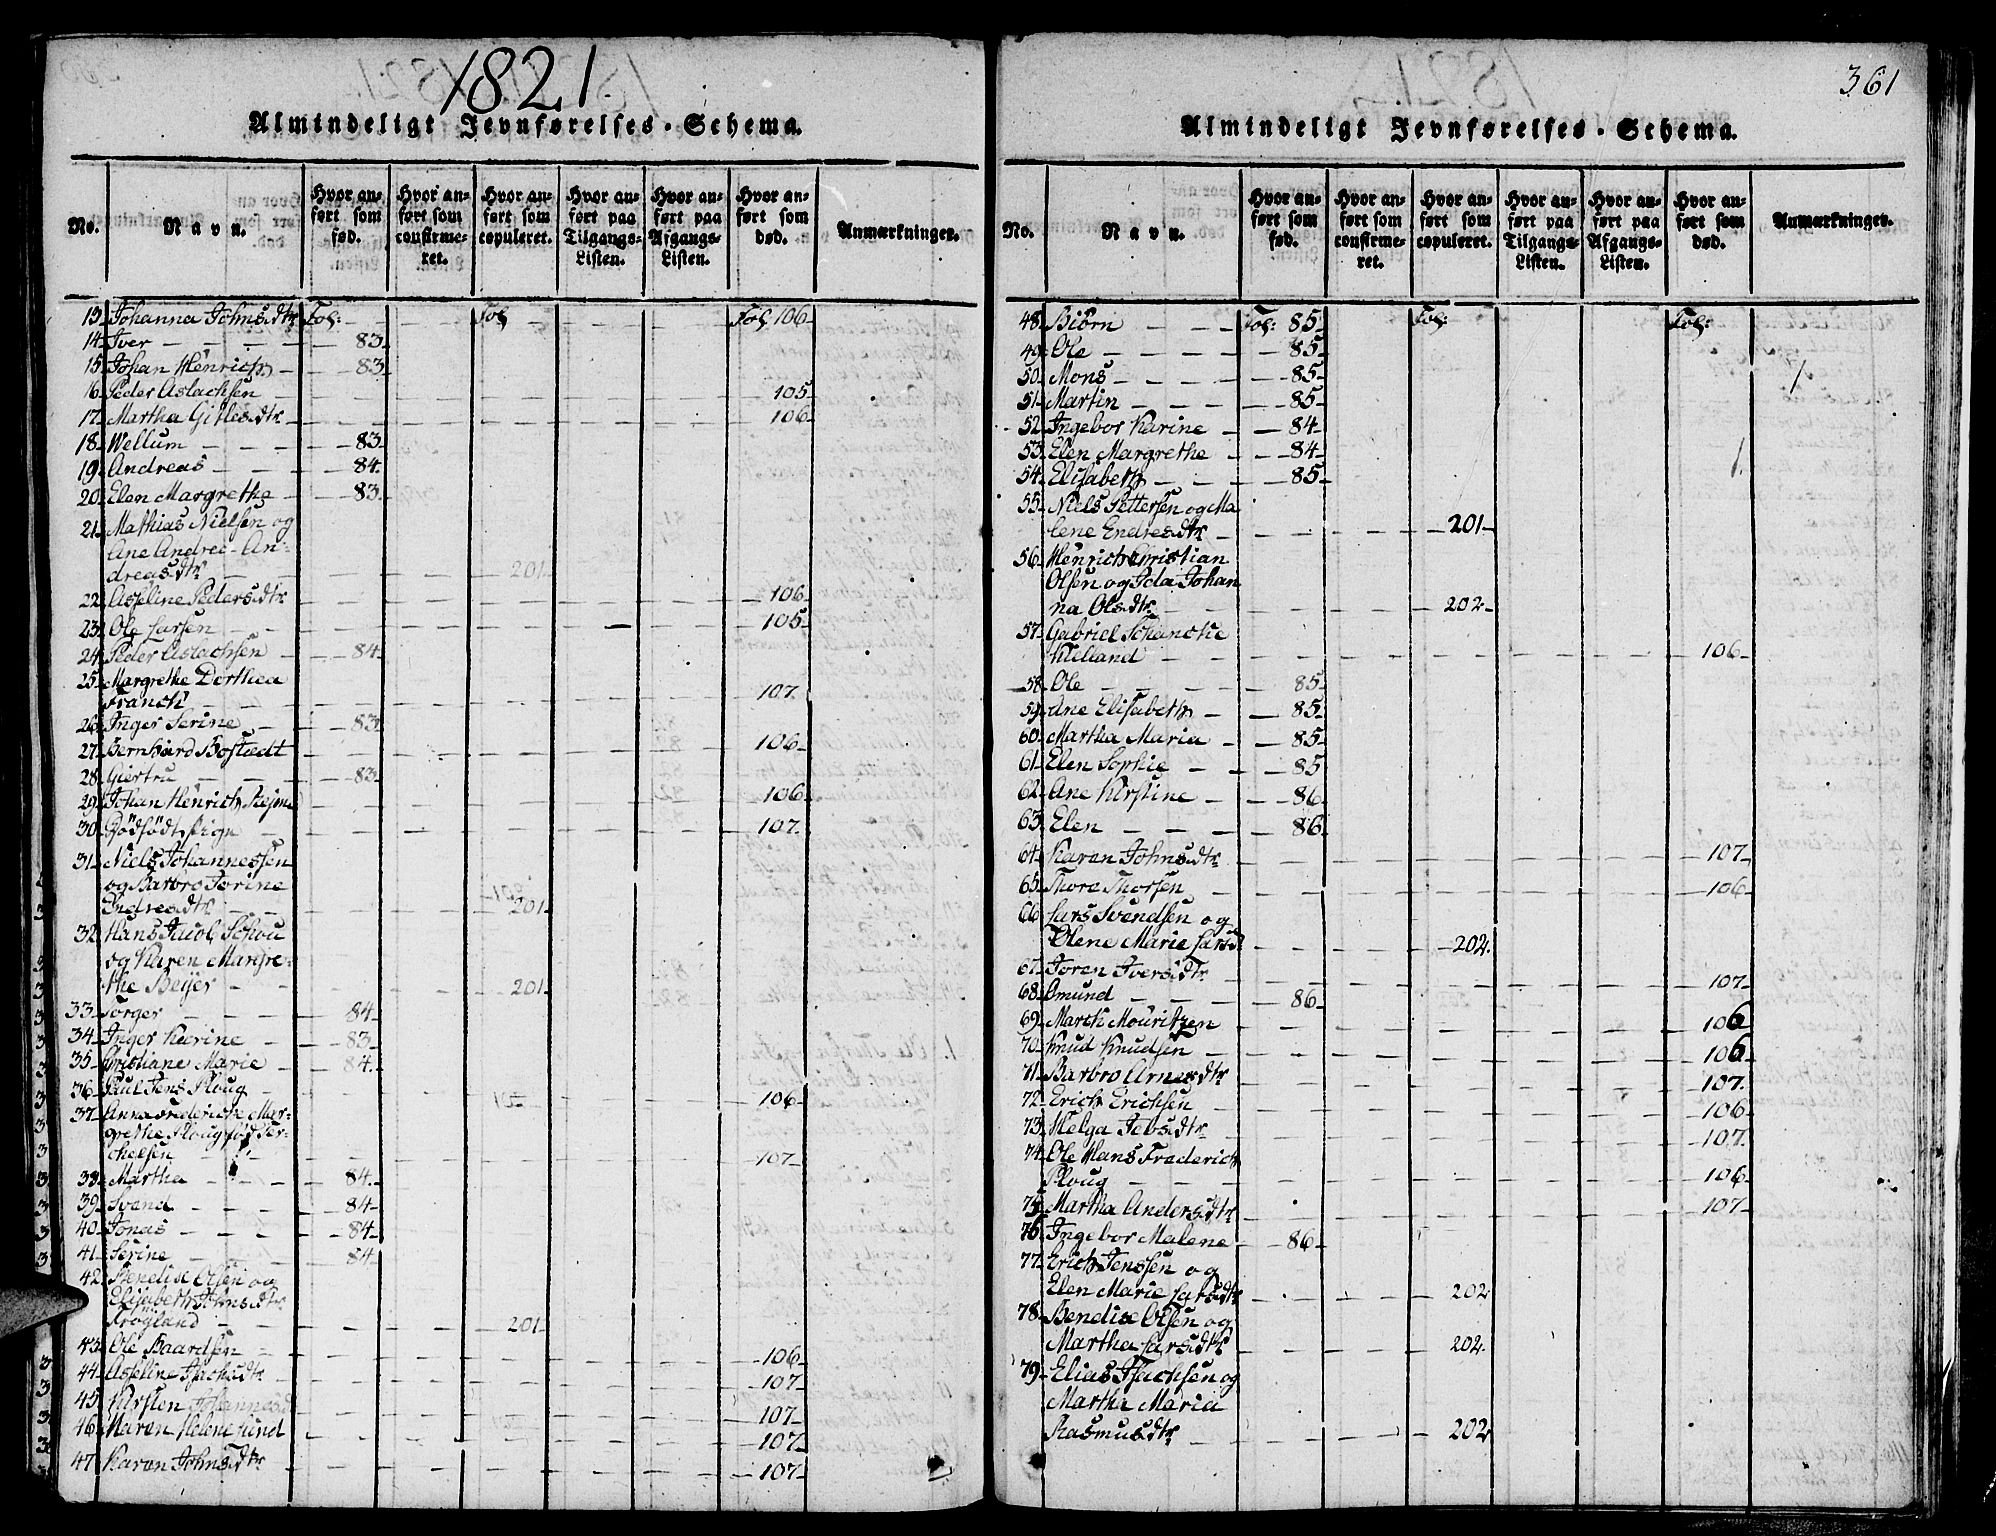 1821.
Almindeligt Jevnførelses-Schema.
No. Navn. Hvor anført som fød. Hvor anført som confirmeret. Hvor anført som copuleret. Hvor anført paa Tilgangs-Listen. Hvor anført paa Afgangs-Listen. Hvor anført som død. Anmærkninger.
13. Johanna Johnsdtr Fol: Fol Fol 106
14. Iver 83
15. Johan Henrich 83
16. Peder Aslachsen 105
17. Martha Gitlesdtr 106
18. Wellum 83
19. Andreas 84
20. Elen Margrethe 83
21. Mathias Nielsen og
Ane Andrea An-
dreasdtr 201
22. Asseline Pedersdtr 106
23. Ole Larsen 105
24. Peder Aslachsen 84
25. Margrethe Dorthea
Franck 107
26. Inger Serine 83
27. Bernhard Bostedt 106
28. Giertru 83
29. Johan Henrich 106
30. Dödfödt Pige 107
31. Niels Johannessen
og Barbro Torine
Endresdtr 201
32. Hans Jacob Schou
og Karen Margre-
the Beyer 201
33. Torger 84
34. Inger Karine 83
35. Christiane Marie 84
36. Paul Jens Ploug 106
37. Anna Frederiche Mar-
grethe Ploug fød Ter-
chelsen 107
38. Martha 84
39. Svend 84
40. Jonas 84
41. Serine 84
42. Bendixe Olsen og
Elisabeth Johnsdtr
Frögland 201
43. Ole Baardsen 106
44. Asseline Isachsdtr 107
45. Kirsten Johannesd 107
46. Maren Helene Lund 107
47. Karen Johnsdtr 107
361
Almindeligt Jevnførelses-Schema.
No. Navn. Hvor anført som fød. Hvor anført som confirmeret. Hvor anført som copuleret. Hvor anført paa Tilgangs-Listen. Hvor anført paa Afgangs-Listen. Hvor anført som død. Anmærkninger.
48. Biörn Fol: 85 Fol: Fol:
49. Ole 85
50. Mons 85
51. Martin 85
52. Ingebor Karine 84
53. Elen Margrethe 84
54. Elisabeth 85
55. Niels Pettersen og Ma
lene Endresdtr 201
56. Henrich Christian
Olsen og Ida Johan
na Olsdtr 202
57. Gabriel Schanche
Kielland 106
58. Ole 85
59. Ane Elisabeth 85
60. Martha Maria 85
61. Elen Sophie 85
62. Ane Kirstine 86
63. Elen 86
64. Karen Johnsdtr 107
65. Thore Thorsen 106
66. Lars Svendsen og
Olene Marie Larsd 202
67. Toren Iversdtr 107
68. Omund 86
69. Marck Mouritzen 106
70. Knud Knudsen 106
71. Barbro Arnesdtr 107
72. Erich Erichsen 106
73. Helga Jebsdtr 107
74. Ole Hans Frederich
Ploug 106
75. Martha Andersdtr 107
76. Ingebor Malene 86
77. Erich Jenssen og
Elen Marie Larsdtr 202
78. Bendixe Olsen og
Martha Larsdtr 202
79. Elias Isachsen og
Martha Maria
Rasmusdtr 202